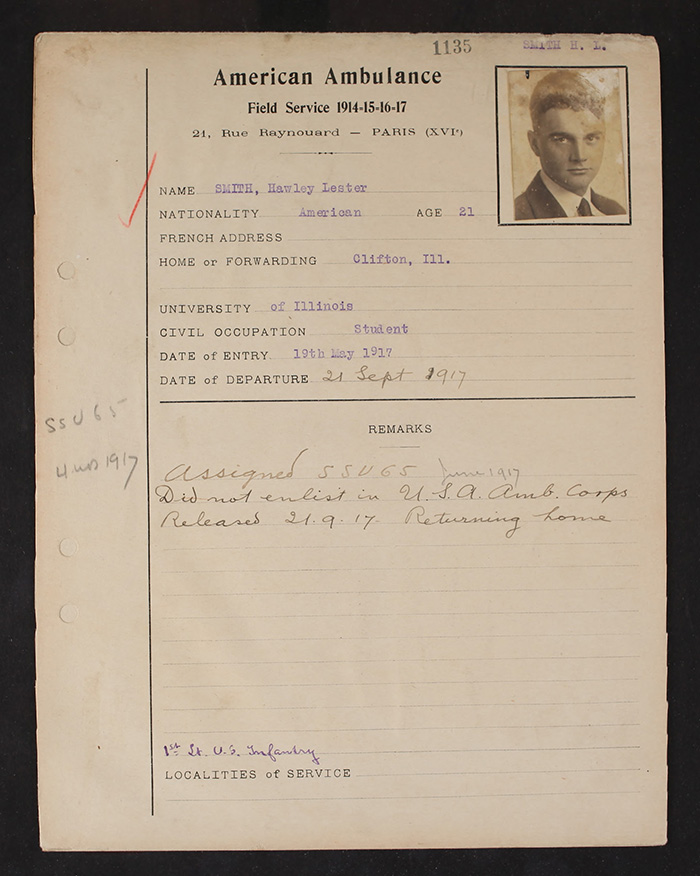 1135 SMITH H. L.
American Ambulance
Field Service 1914-15-16-17
21, Rue Raynouard — PARIS (XVIe)
NAME SMITH, Hawley Lester
NATIONALITY American AGE 21
FRENCH ADDRESS
HOME or FORWARDING Clifton, Ill.
UNIVERSITY of Illinois
CIVIL OCCUPATION Student
DATE of ENTRY 19th May 1917
DATE of DEPARTURE 21 Sept 1917
REMARKS
SSU 65
4 mos 1917
Assigned SSU 65 June 1917
Did not enlist in U.S.A. Amb. Corps
Released 21.9.17. Returning home
1st Lt. U.S. Infantry
LOCALITIES of SERVICE